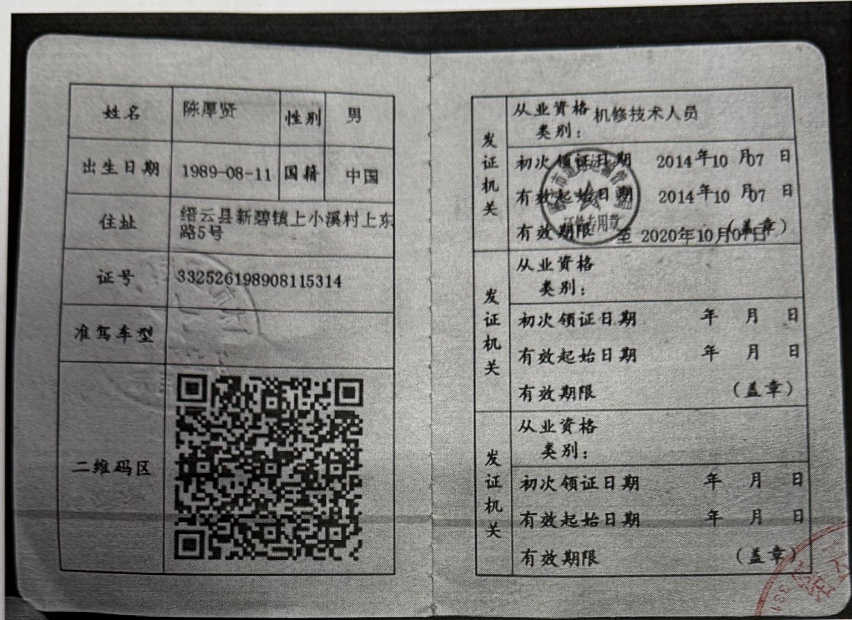 姓名 陈厚贤 性别 男
出生日期 1989-08-11 国籍 中国
住址 缙云县新碧镇上小溪村上东
路5号
证号 332526198908115314
准驾车型
二维码区
发证机关
从业资格 机修技术人员
类别：
初次领证日期 2014年10月07日
有效起始日期 2014年10月07日
有效期限 至 2020年10月07日 （盖章）
证件专用章
发证机关
从业资格
类别：
初次领证日期 年 月 日
有效起始日期 年 月 日
有效期限 （盖章）
发证机关
从业资格
类别：
初次领证日期 年 月 日
有效起始日期 年 月 日
有效期限 （盖章）
331